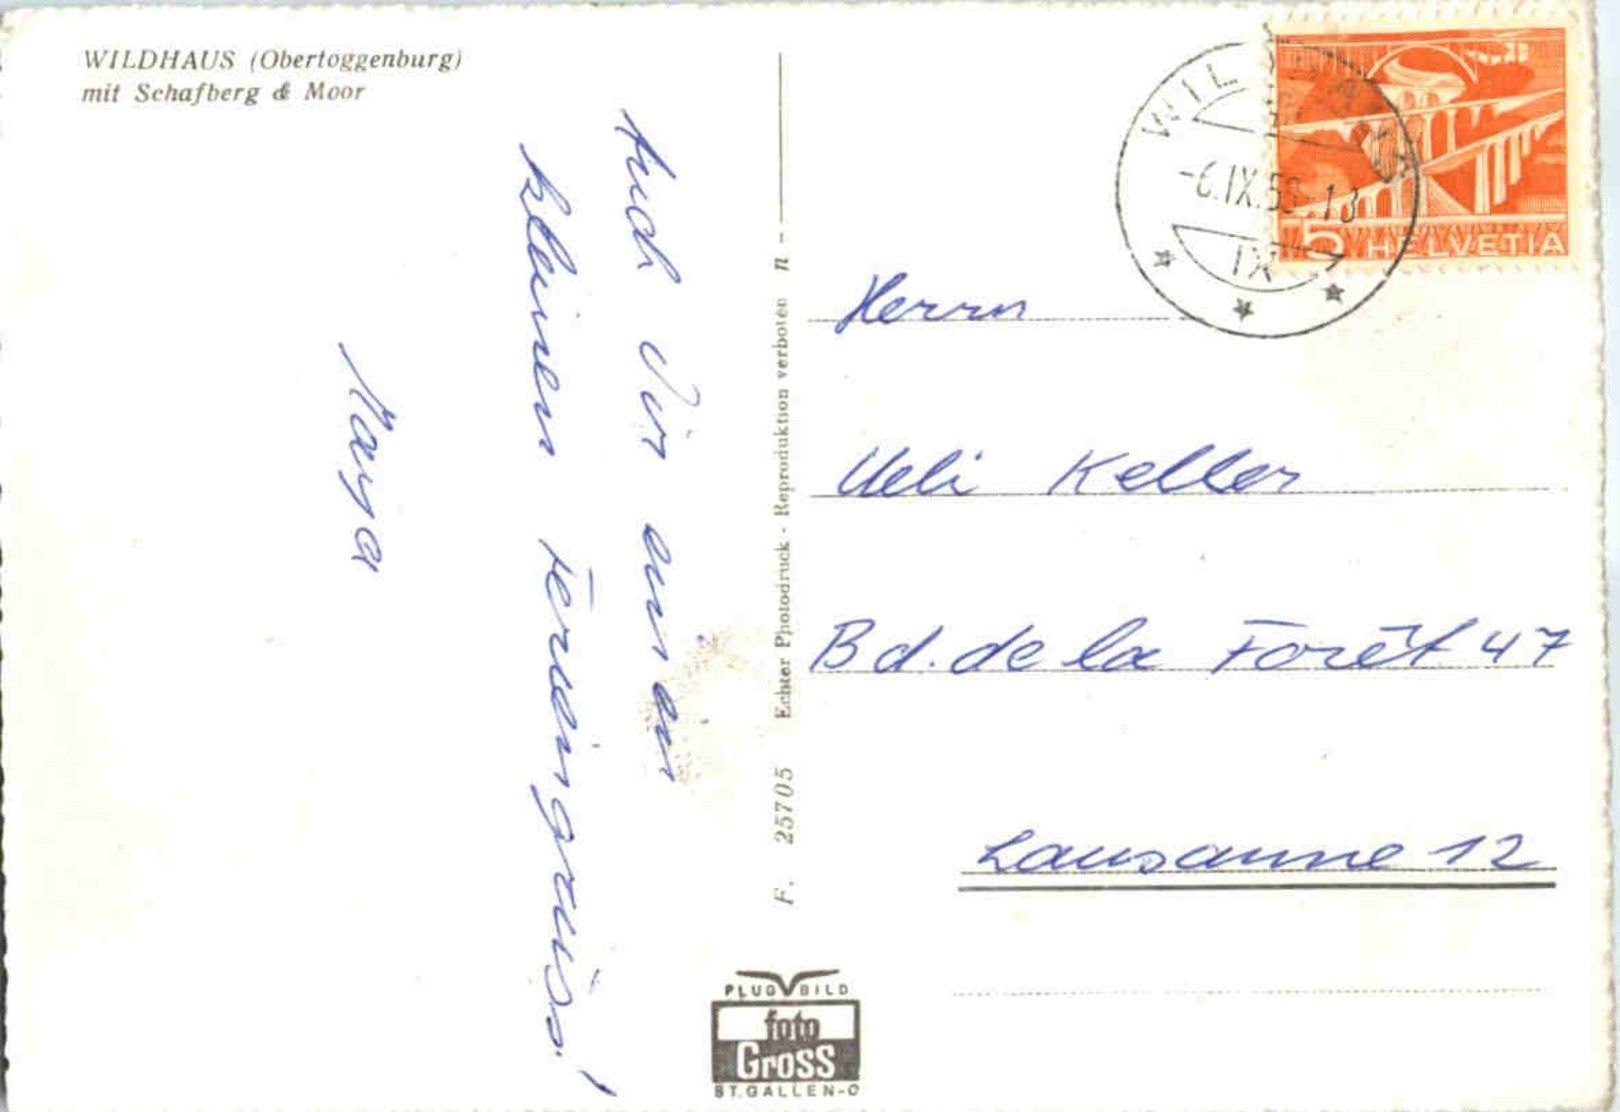 WILDHAUS (Obertoggenburg)
mit Schafberg & Moor
Auch Dir einen
kleinen Feriengruss!
Maya
F. 25705 Echter Photodruck - Reproduktion verboten n -
WILDHAUS
-6.IX.56-18
IX
5 HELVETIA
Herrn
Ueli Keller
Bd. de la Forêt 47
Lausanne 12
PLUGBILD
foto
Gross
ST.GALLEN-O